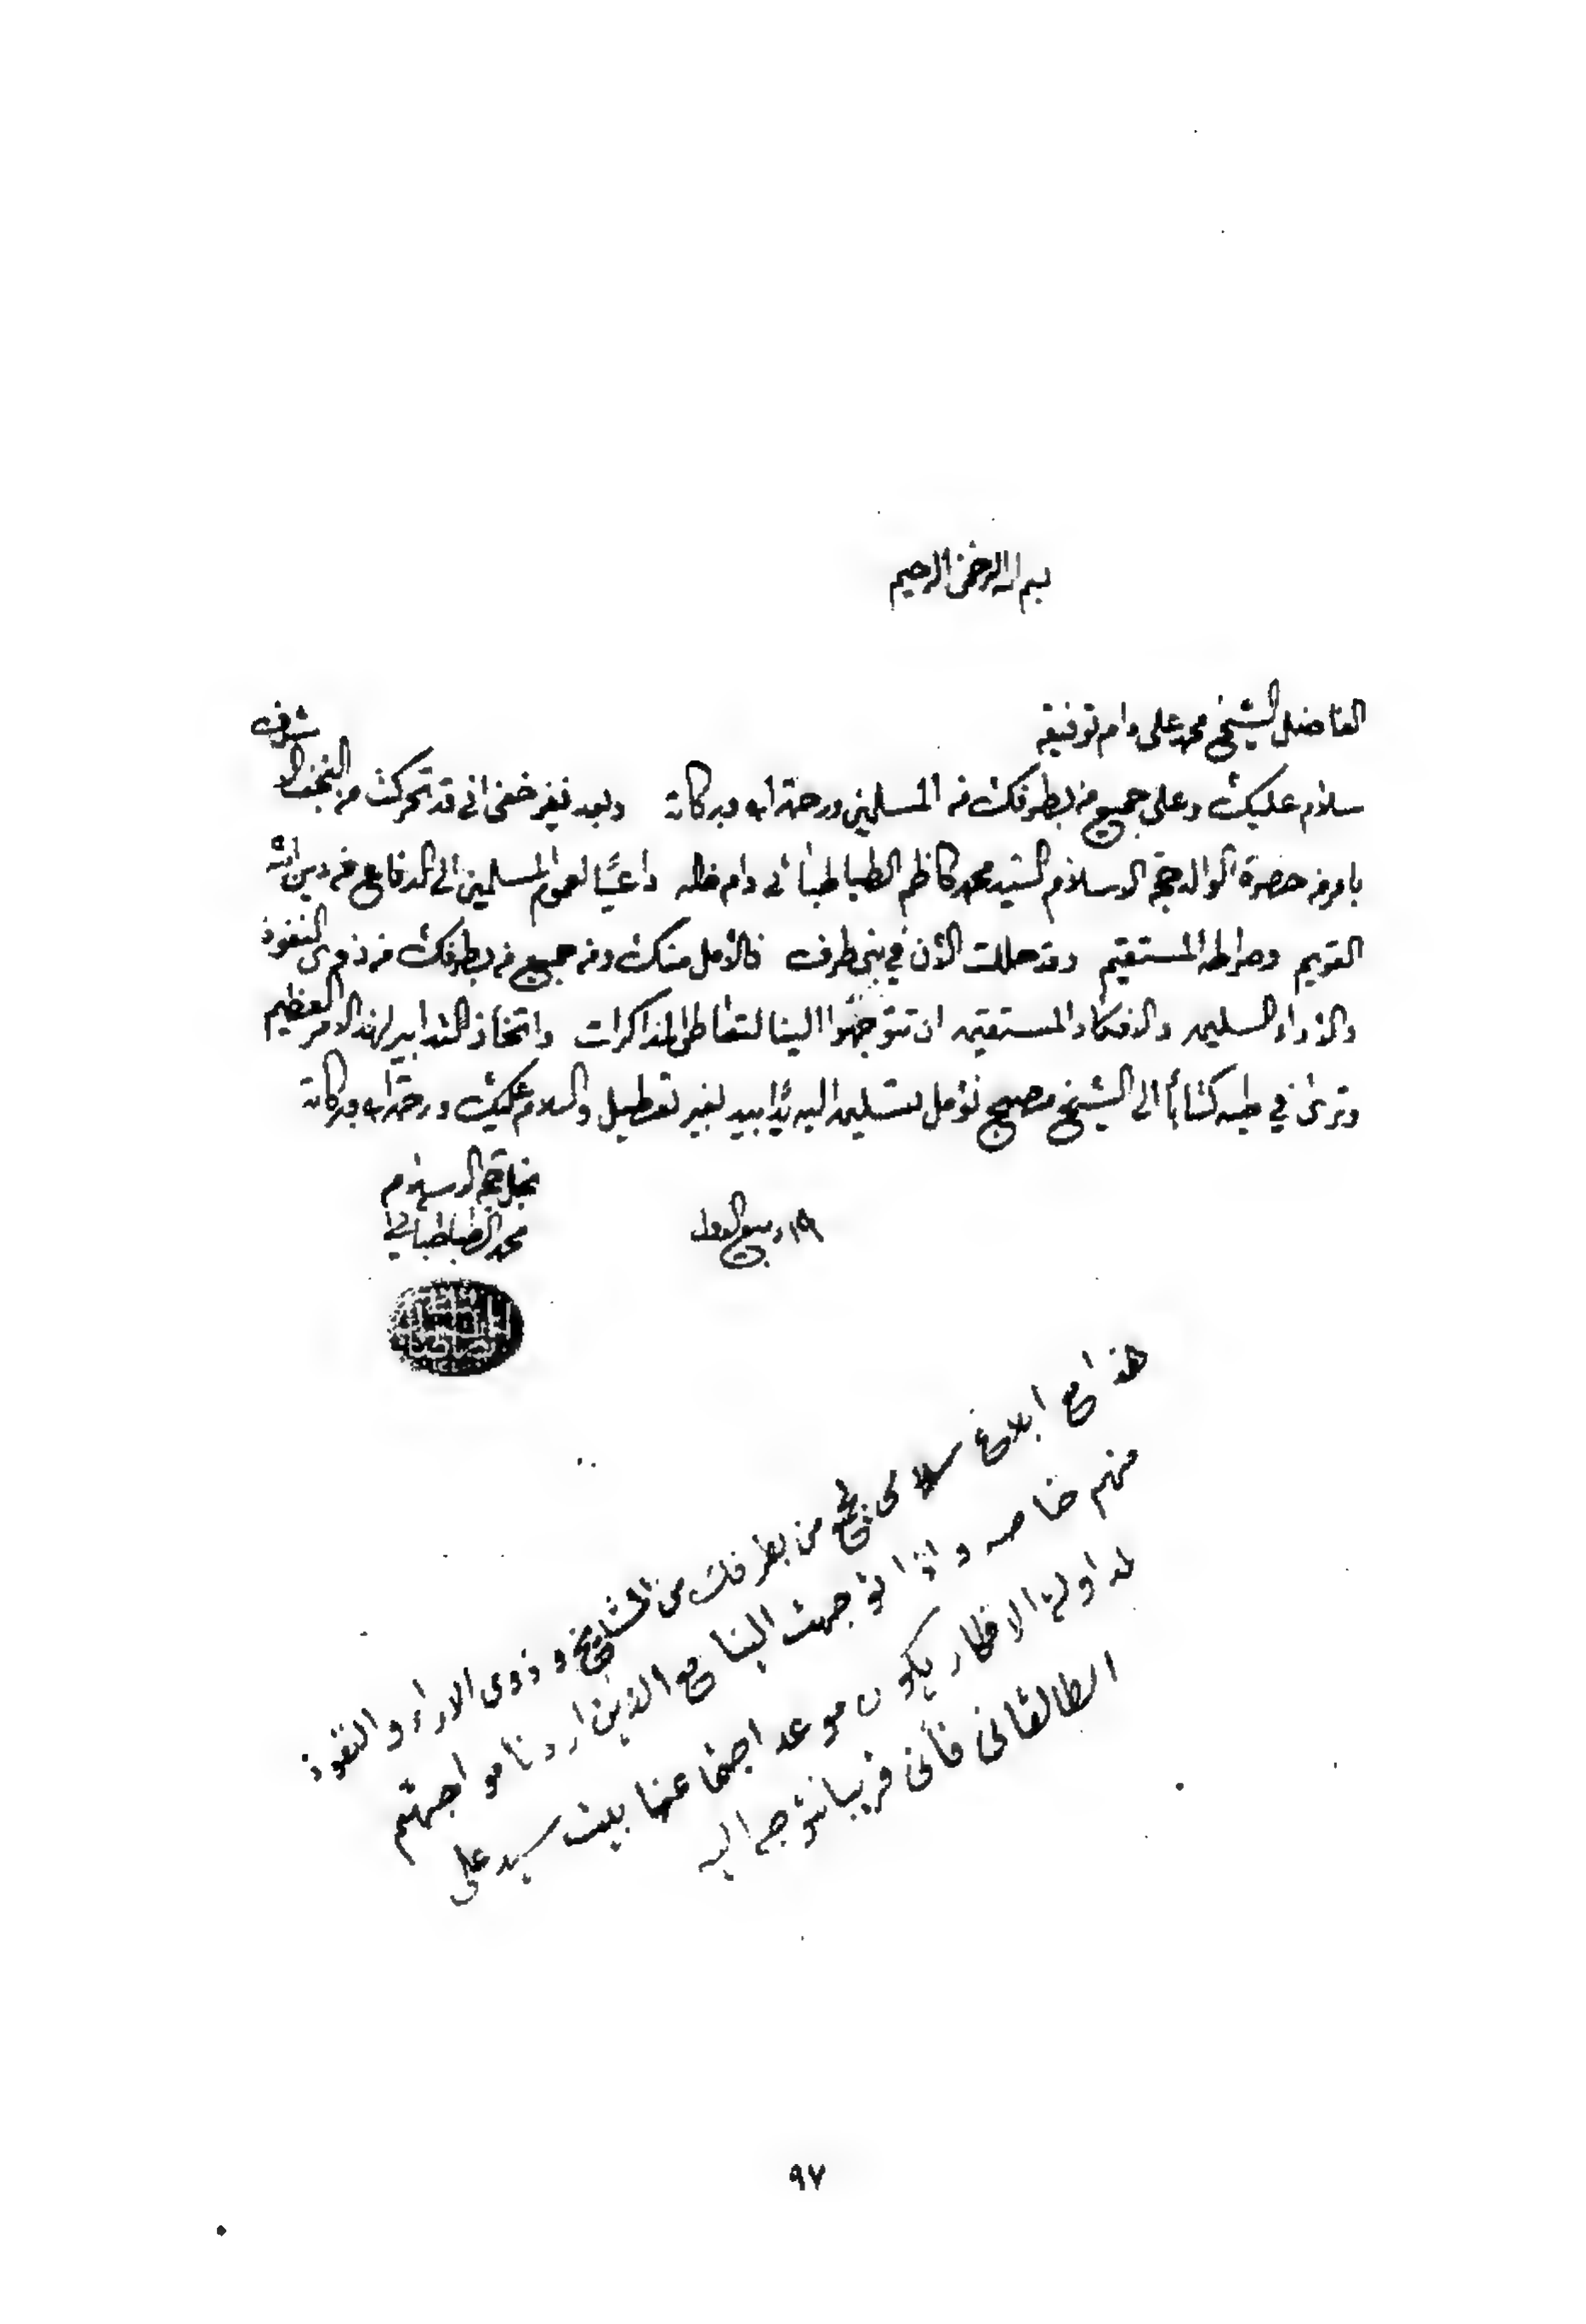 بسم الله الرحمن الرحيم
الفاضل الشيخ محمد علي دام توفيقه
سلام عليك وعلى جميع من بطرفك من المسلمين ورحمة الله وبركاته وبعد فغير خفي اني قد تحركت من النجف الاشرف
بامر من حضرة الوالد حجة الاسلام السيد محمد كاظم الطباطبائي دام ظله داعيًا لعموم المسلمين الى الدفاع عن دين الله
القويم وصراطه المستقيم وقد حللت الآن في بني طرف فالأمل منك ومن جميع من بطرفك من ذوي النفوذ
والآراء السليمه والافكار المستقيمه ان تتوجهوا الينا لتعاطي المذاكرات واتخاذ التدابير لهذا الامر العظيم
وترى في طيه كتاباً الى الشيخ مصبح نؤمل تسليمه اليه يدًا بيد بغير تعطيل والسلام عليك ورحمة الله وبركاته
نجل حجة الاسلام
١٩ ربيع الاول
محمد الطباطبائي
هذا مع ابلاغ سلامي من بطرفك من المشايخ وذوى الاراء والنفوذ
منهم خاصه واذا توجهت الينا مع الذين اردنا مواجهتهم
لمداولة الافكار يكون موعد اجتماعنا بيت سيد على
الطالقانى فأنى قريبا نتوجه اليه
٩٧